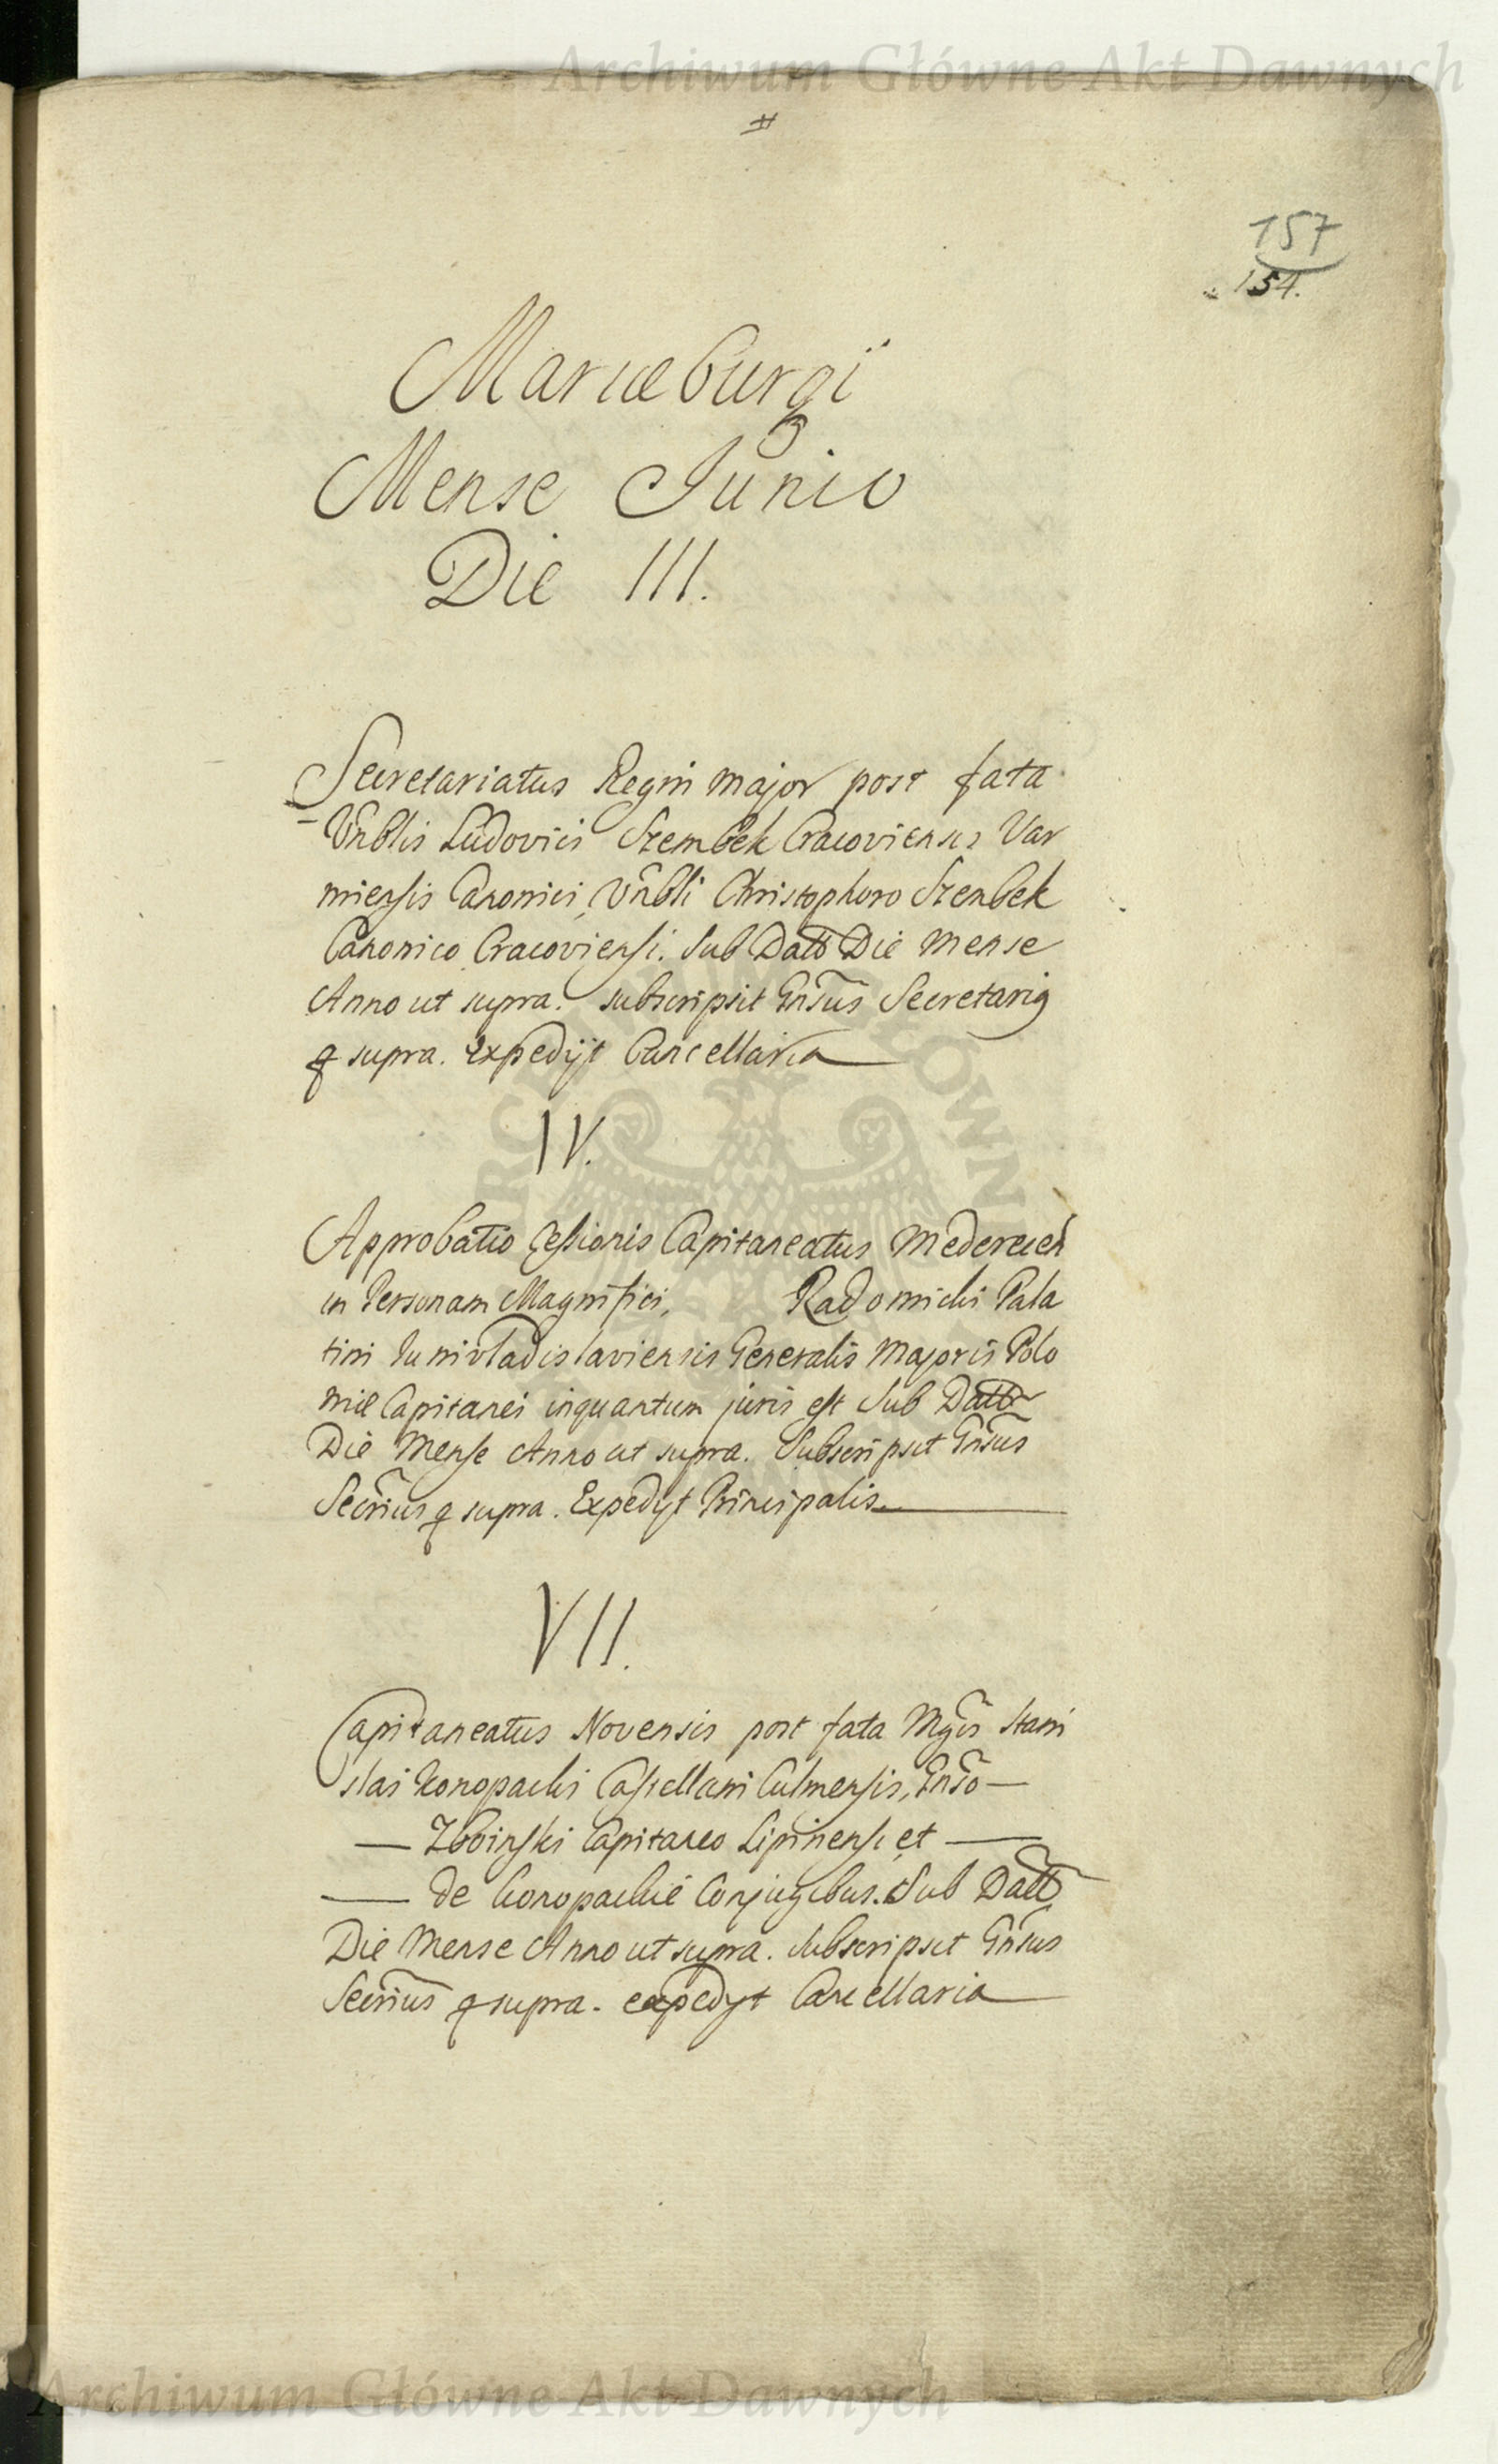 Archiwum Główne Akt Dawnych
#
157
154.
Mariæburgi
Mense Junio
Die III.
Secretariatus Regni major post fata
Vnblis Ludovici Szembek Cracoviensis Var
miensis Canonici, Vnbli Christophoro Szenbek
Canonico Cracoviensi. Sub Datt Die Mense
Anno ut supra. subscripsit Gnsus Secretarig
q supra. Expedijt Cancellaria
IV.
Approbatio Cessionis Capitaneatus Medereceń
in Personam Magnifici, Radomicki Pala
tini Junivladislaviensis Generalis Majoris Polo
niæ Capitanei inquantum juris est Sub Datt
Die Mense Anno ut supra. Subscripsit Gnsus
Secrius q supra. Expedyt Principalis
VII.
Capitaneatus Novensis post fata Mgcis Stani
slai Konopacki Castellani Culmensis, Gnso —
— Zboinski Capitaneo Lipinensi et —
— de Konopackie Conjugibus. Sub Datt
Die Mense Anno ut supra. Subscripsit Gnsus
Secrius q supra. expedyt Cancellaria
Archiwum Główne Akt Dawnych